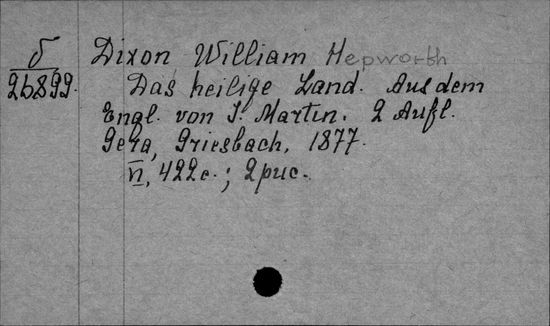 δ
26899.
Dixon William Hepworth
Das heilige Land. Aus dem
Engl. von J. Martin. 2 Aufl.
Gera, Griesbach, 1877.
VI, 422 c.; 2 рис.